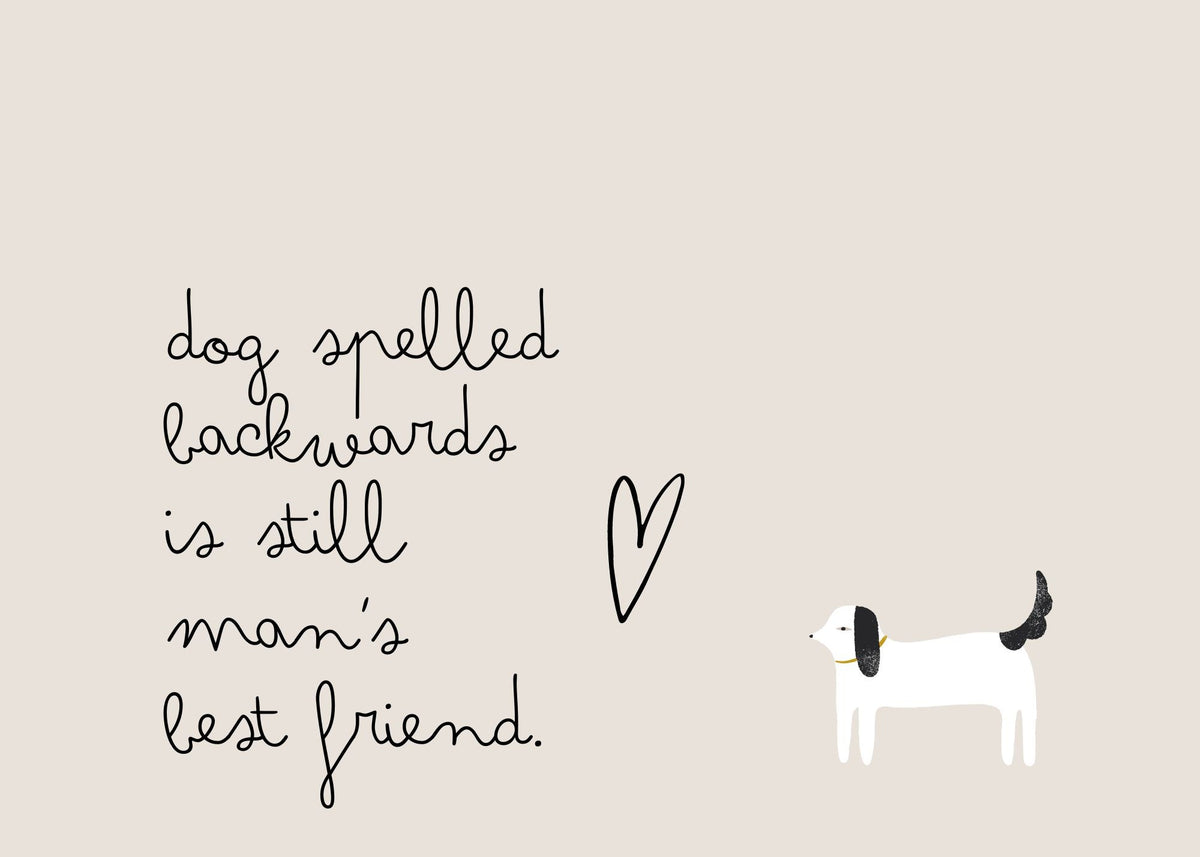 dog spelled
backwards
is still
man's
best friend.